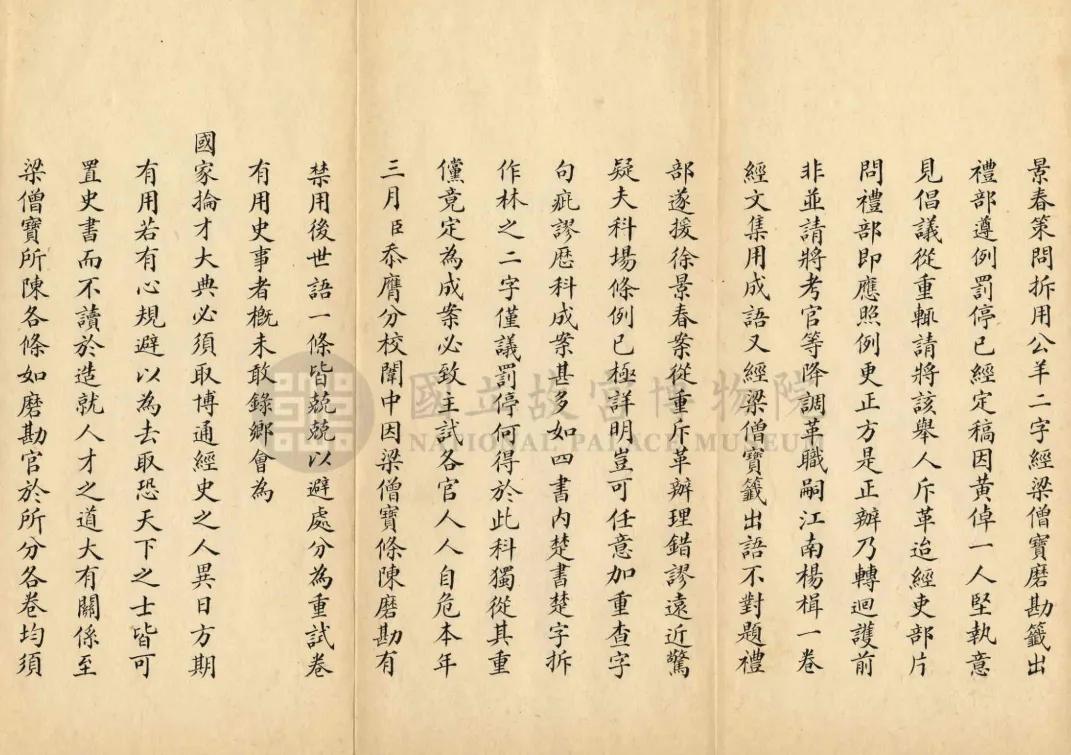 景春策問拆用公羊二字經梁僧寶磨勘籤出
禮部遵例罰停已經定稿因黃倬一人堅執意
見倡議從重輒請將該舉人斥革迨經吏部片
問禮部即應照例更正方是正辦乃轉迴護前
非並請將考官等降調革職嗣江南楊楫一卷
經文集用成語又經梁僧寶籤出語不對題禮
部遂援徐景春案從重斥革辦理錯謬遠近驚
疑夫科場條例已極詳明豈可任意加重查字
句疵謬歷科成案甚多如四書內楚書楚字拆
作林之二字僅議罰停何得於此科獨從其重
儻竟定為成案必致主試各官人人自危本年
三月臣忝膺分校闈中因梁僧寶條陳磨勘有
禁用後世語一條皆兢兢以避處分為重試卷
有用史事者概未敢錄鄉會為
國家掄才大典必須取博通經史之人異日方期
有用若有心規避以為去取恐天下之士皆可
置史書而不讀於造就人才之道大有關係至
梁僧寶所陳各條如磨勘官於所分各卷均須
國立故宮博物院
NATIONAL PALACE MUSEUM